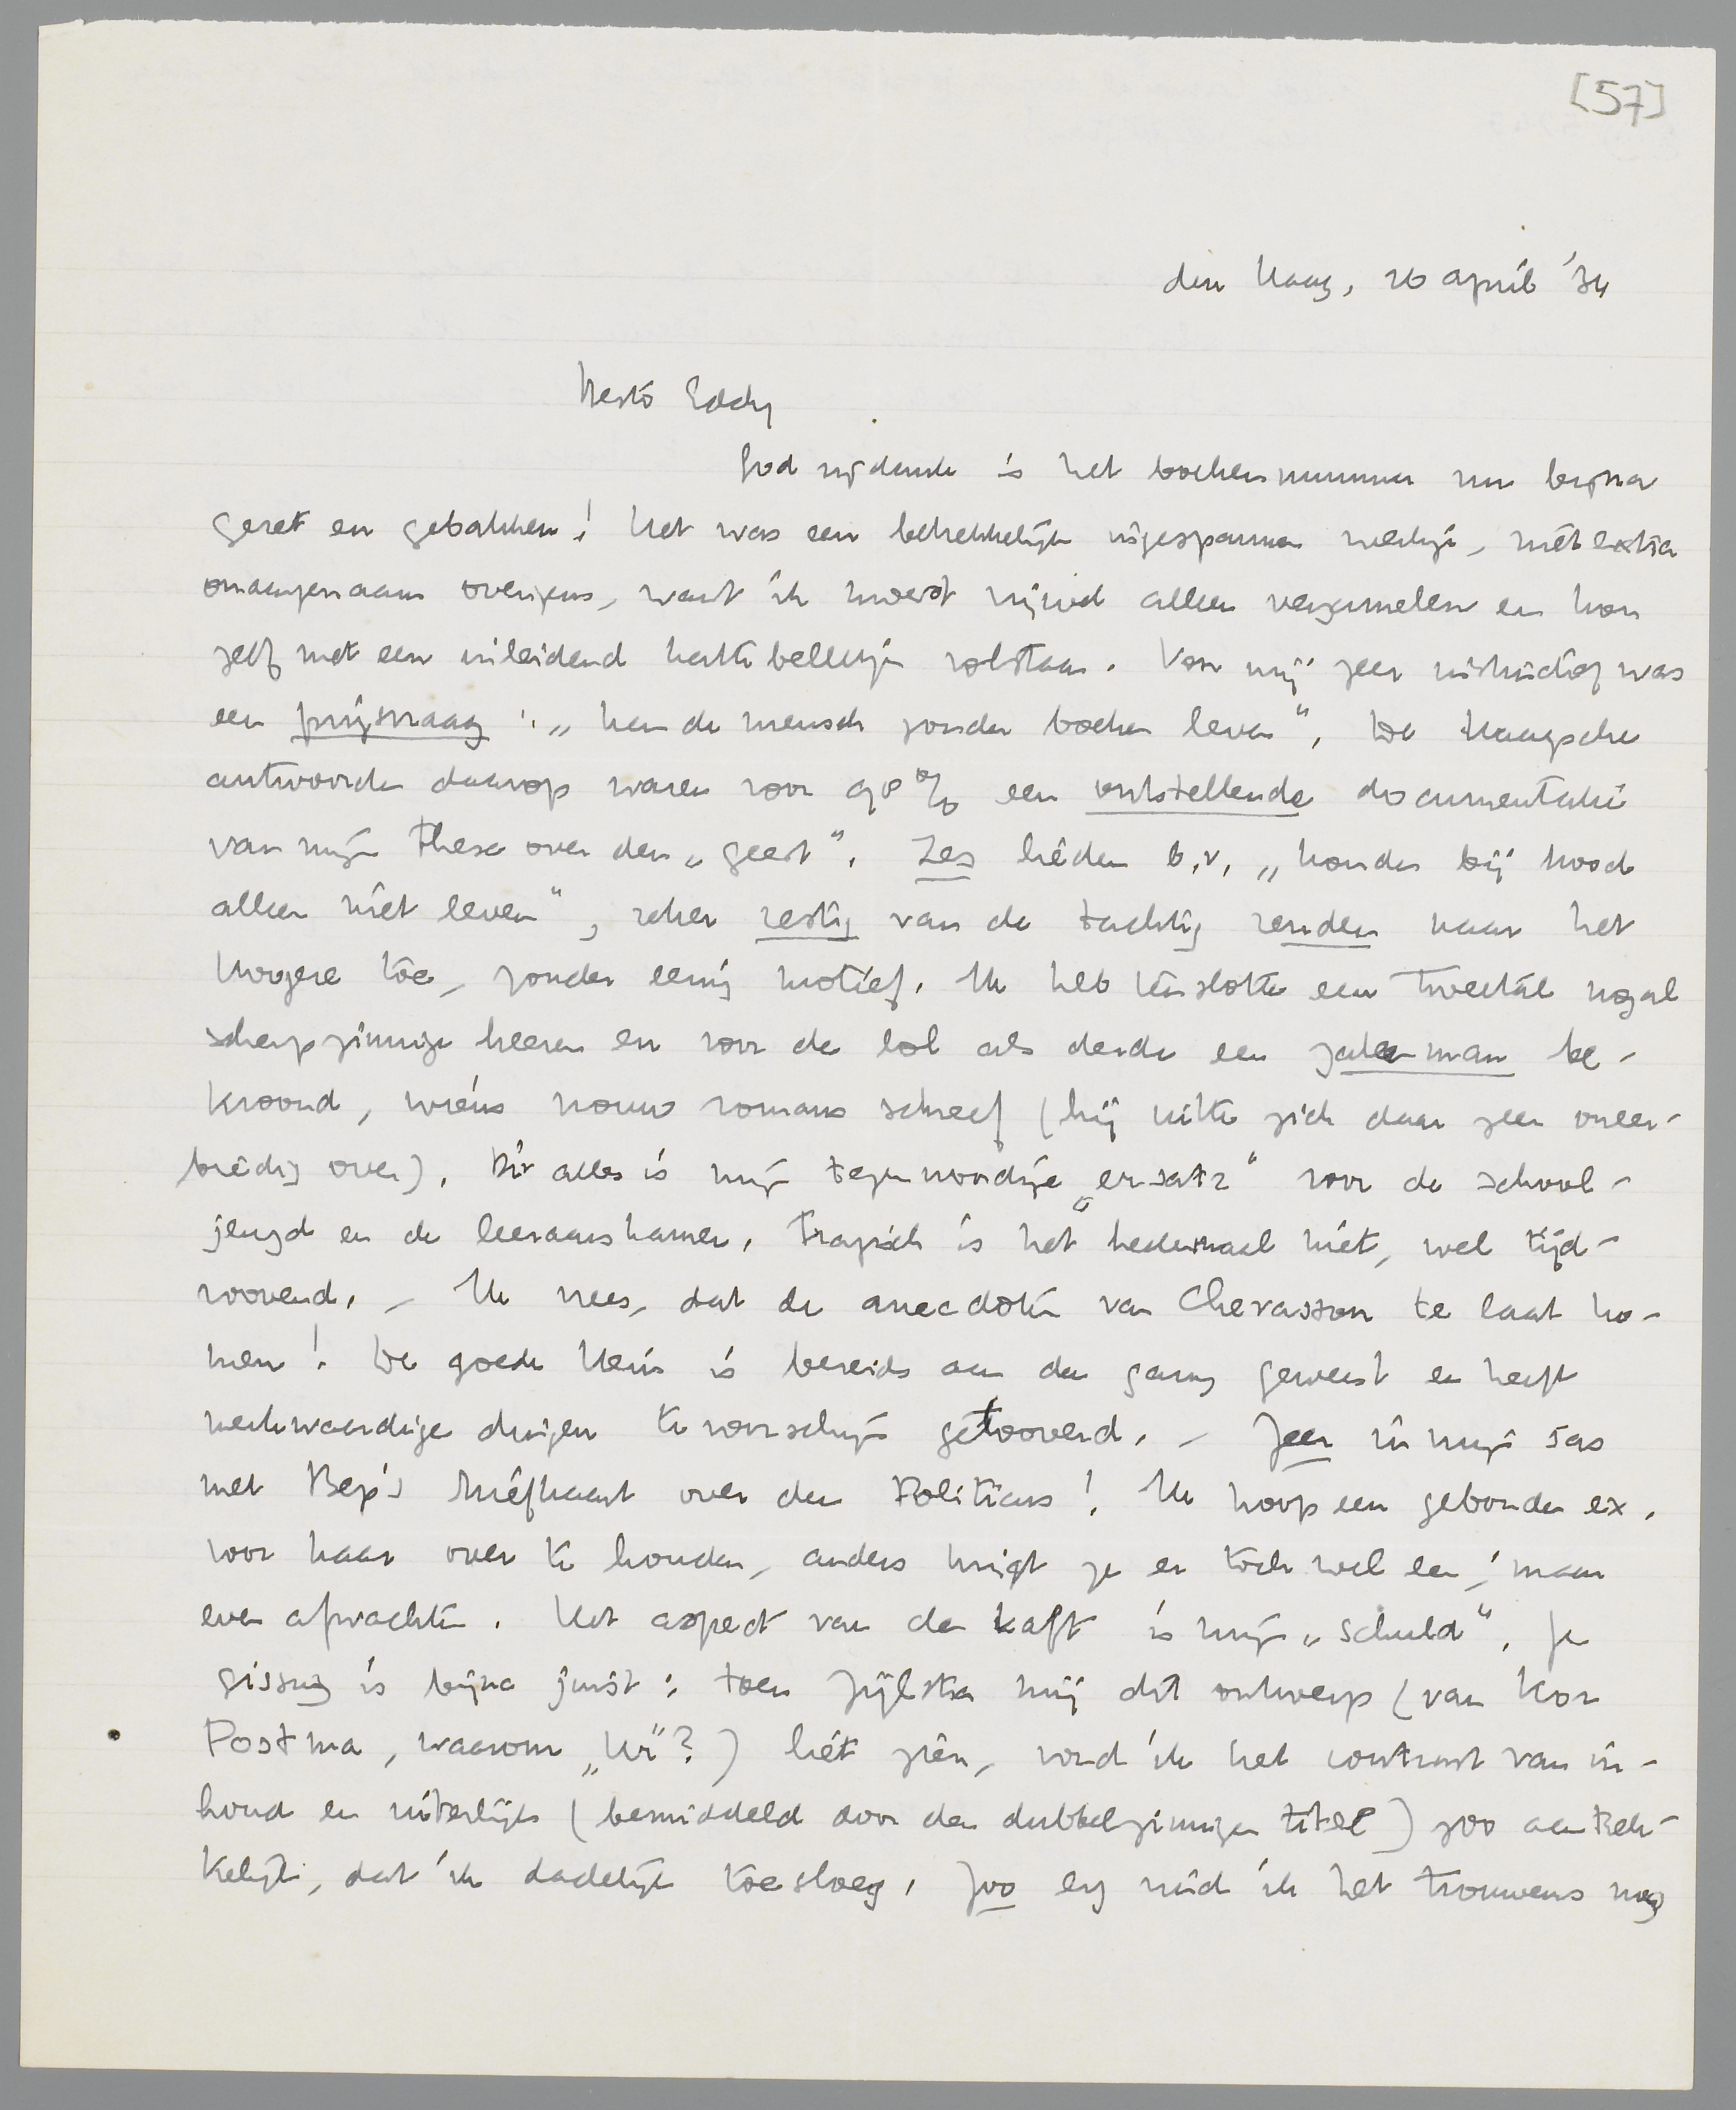 [57]
den Haag, 26 april '34
Beste Eddy
God zij dank is het boekennummer nu bijna
gezet en gebakken! Het was een betrekkelijk ingespannen werkje, niet extra
onaangenaam overigens, want ik moest vrijwel alleen verzamelen en kon
zelf met een inleidend kattebelletje volstaan. Voor mij zeer instructief was
een prijsvraag: „kan de mensch zonder boeken leven”. De Haagsche
antwoorden daarop waren voor 98% een ontstellende documentatie
van mijn these over den „geest”. Zes lieden b.v. „konden bij brood
alleen niet leven”, zeker zestig van de tachtig renden naar het
hoogere toe, zonder eenig motief. Ik heb tenslotte een tweetal nogal
scherpzinnige heeren en voor de lol als derde een zakenman be-
kroond, wiens vrouw romans schreef (hij uitte zich daar zeer oneer-
biedig over). Dit alles is mijn tegenwoordige „ersatz” voor de school-
jeugd en de leeraarskamer. Tragisch is het heelemaal niet, wel tijd-
roovend. – Ik vrees, dat de anecdoten van Chevasson te laat ko-
men! De goede Hein is bereids aan den gang geweest en heeft
merkwaardige dingen te voorschijn getooverd. – Zeer in mijn sas
met Bep's briefkaart over den Politicus! Ik hoop een gebonden ex.
voor haar over te houden, anders krijgt ze er toch wel een; maar
even afwachten. Het aspect van de kaft is mijn „schuld”. Je
gissing is bijna juist: toen Zijlstra mij dit ontwerp (van Kor
Postma, waarom ?) liet zien, vond ik het contrast van in-
houd en uiterlijk (bemiddeld door den dubbelzinnigen titel) zoo aantrek-
kelijk, dat ik dadelijk toesloeg. Zoo erg vind ik het trouwens nog